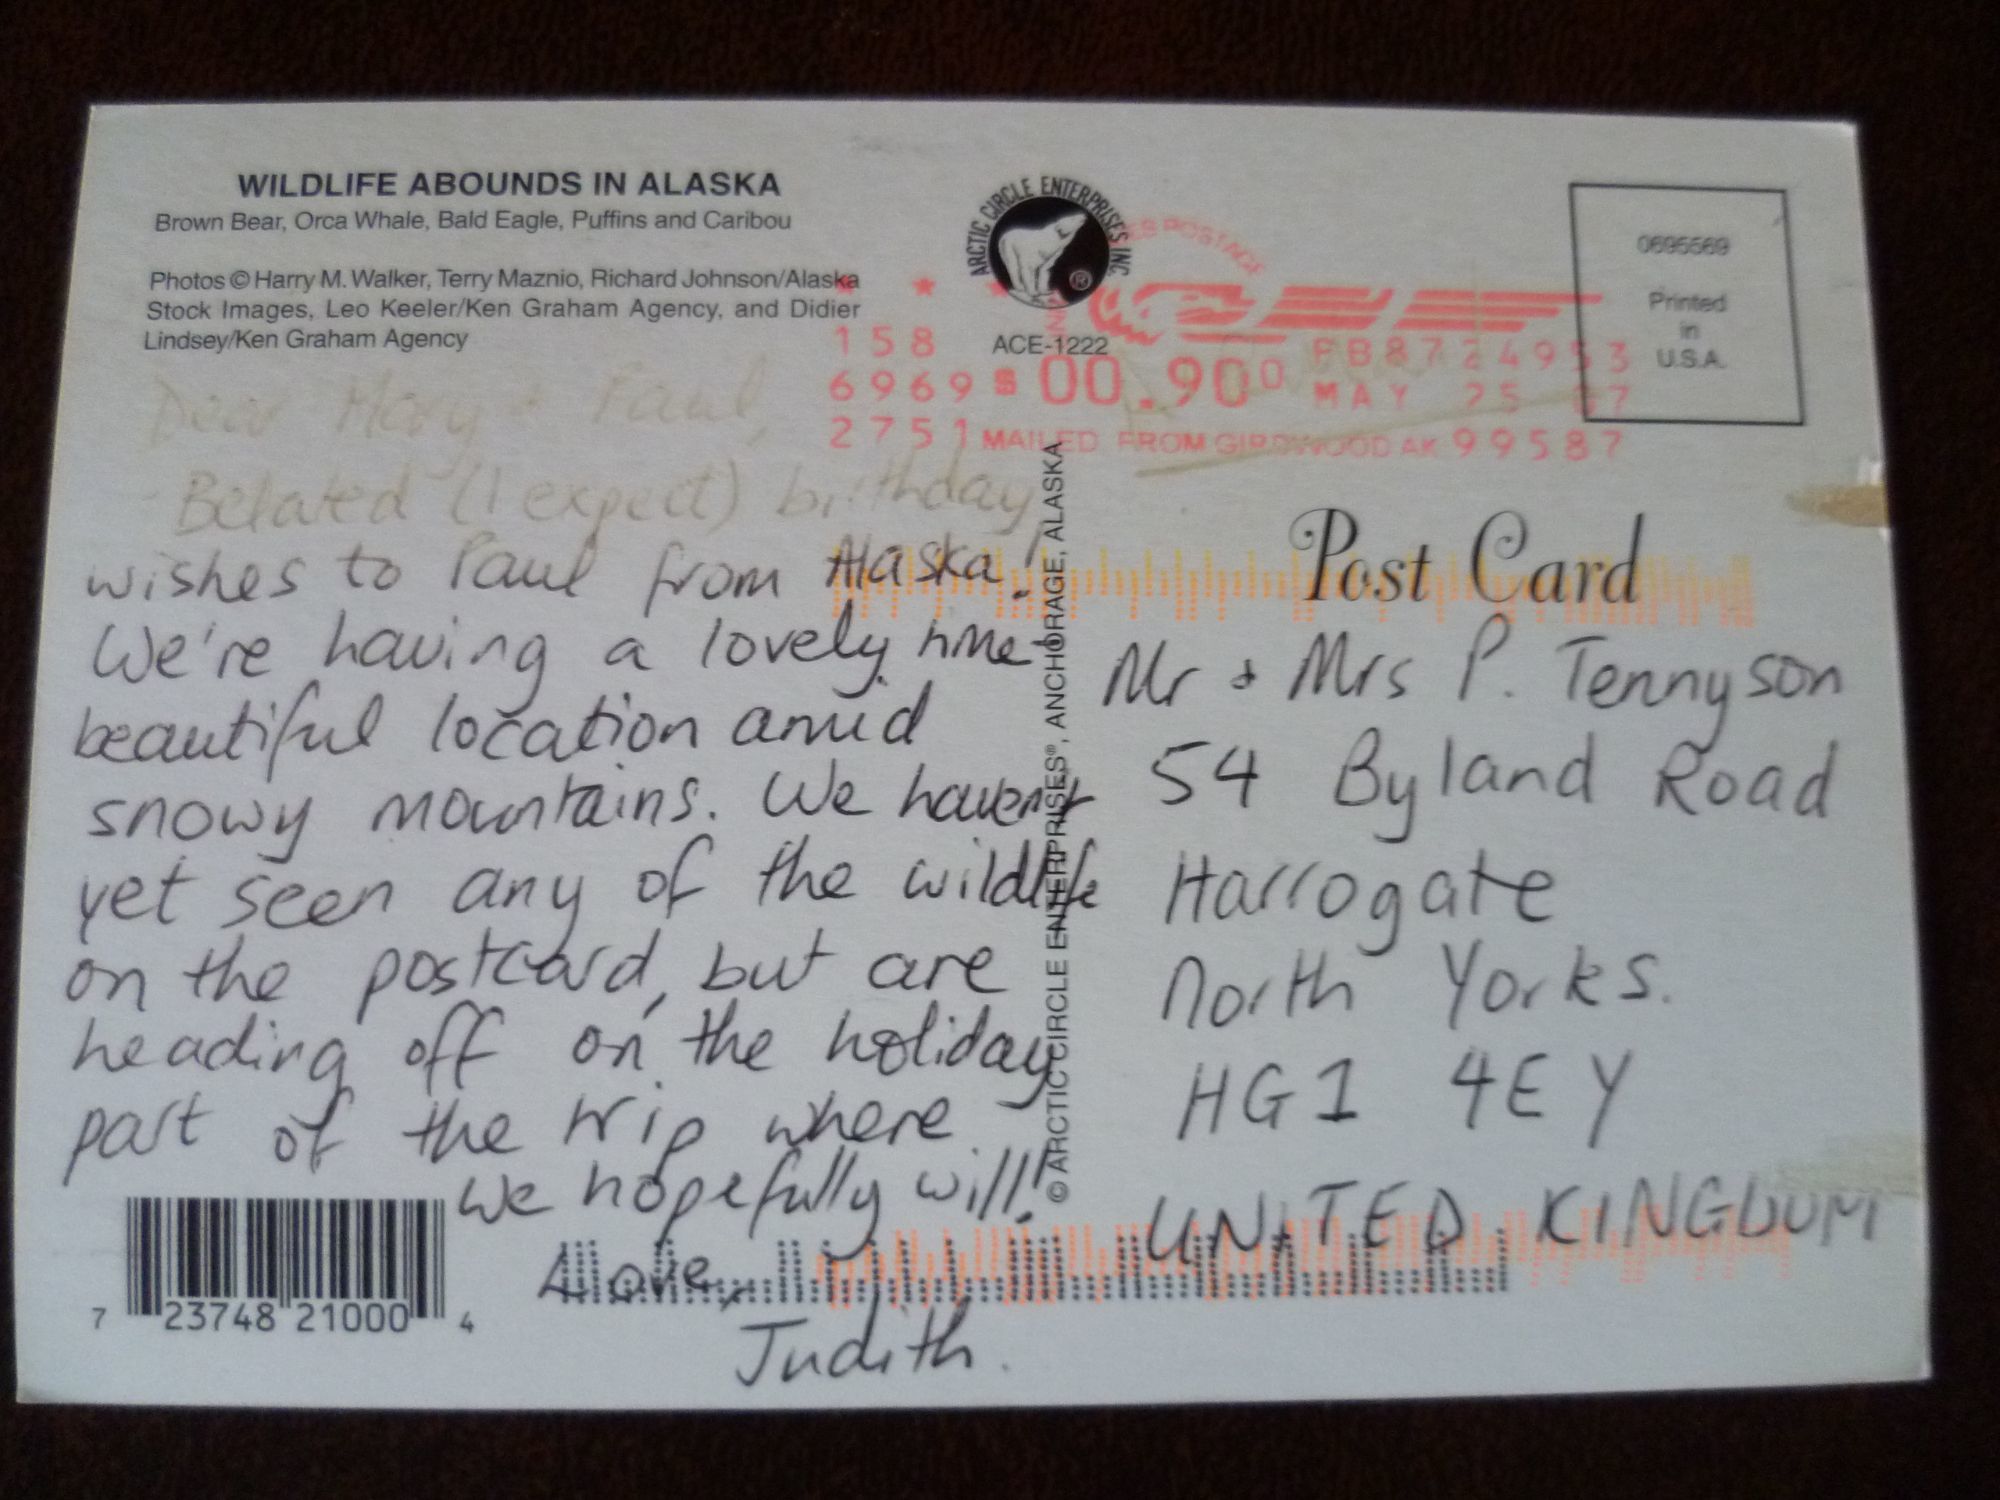 WILDLIFE ABOUNDS IN ALASKA
Brown Bear, Orca Whale, Bald Eagle, Puffins and Caribou
Photos © Harry M. Walker, Terry Maznio, Richard Johnson/Alaska
Stock Images, Leo Keeler/Ken Graham Agency, and Didier
Lindsey/Ken Graham Agency
Dear Mary + Paul,
Belated (I expect) birthday
wishes to Paul from Alaska!
We're having a lovely time -
beautiful location amid
snowy mountains. We haven't
yet seen any of the wildlife
on the postcard, but are
heading off on the holiday
part of the trip where
we hopefully will!
Love,
Judith.
7 23748 21000 4
ARCTIC CIRCLE ENTERPRISES INC.
®
ACE-1222
© ARCTIC CIRCLE ENTERPRISES®, ANCHORAGE, ALASKA
POSTAGE
158
6969 $ 00.900 PB8724953
MAY 25
2751 MAILED FROM GIRDWOOD AK 99587
0695569
Printed
in
U.S.A.
Post Card
Mr + Mrs P. Tennyson
54 Byland Road
Harrogate
North Yorks.
HG1 4EY
UNITED KINGDOM